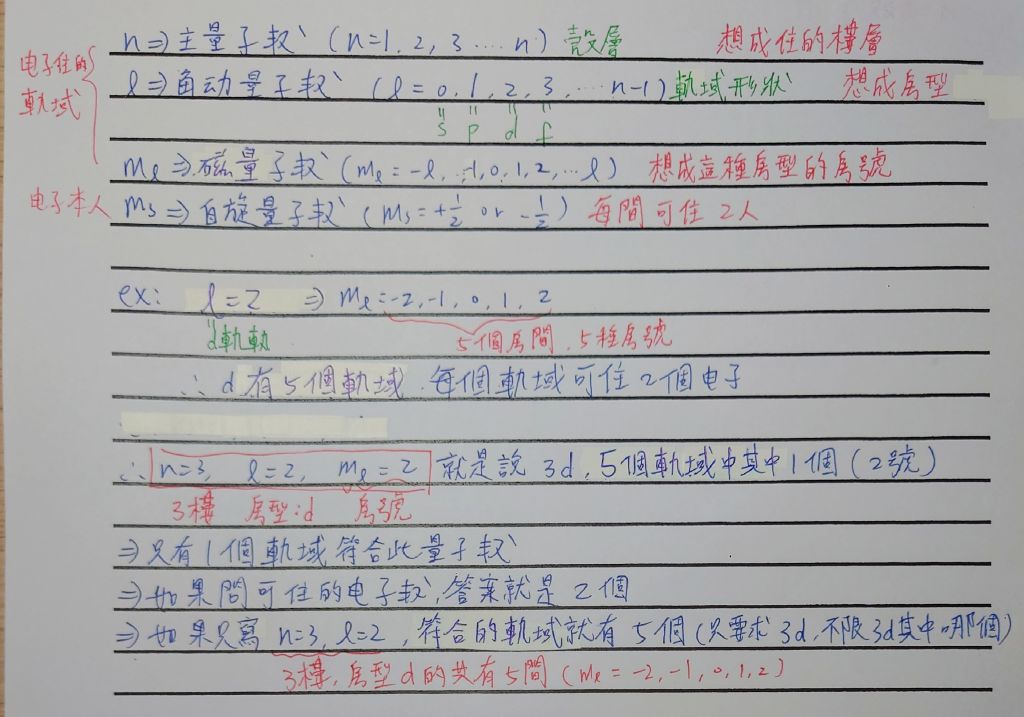 n⇒主量子数 (n=1, 2, 3 .... n) 殼層 想成住的樓層
电子住的軌域
l⇒角动量子数 (l=0, 1, 2, 3, ... n-1) 軌域形狀 想成房型
s p d f
ml⇒磁量子数 (ml=-l, ..-1, 0, 1, 2, ... l) 想成這種房型的房號
电子本人 ms⇒自旋量子数 (ms=+1/2 or -1/2) 每間可住2人
ex: l=2 ⇒ ml=-2, -1, 0, 1, 2
d軌軌 5個房間, 5種房號
∴ d有5個軌域, 每個軌域可住2個电子
∴ n=3, l=2, ml=2 就是說3d, 5個軌域中其中1個 (2號)
3樓 房型:d 房號
⇒只有1個軌域符合此量子数
⇒如果問可住的电子数, 答案就是2個
⇒如果只寫n=3, l=2, 符合的軌域就有5個 (只要求3d, 不限3d其中哪個)
3樓, 房型d的共有5間 (ml=-2, -1, 0, 1, 2)